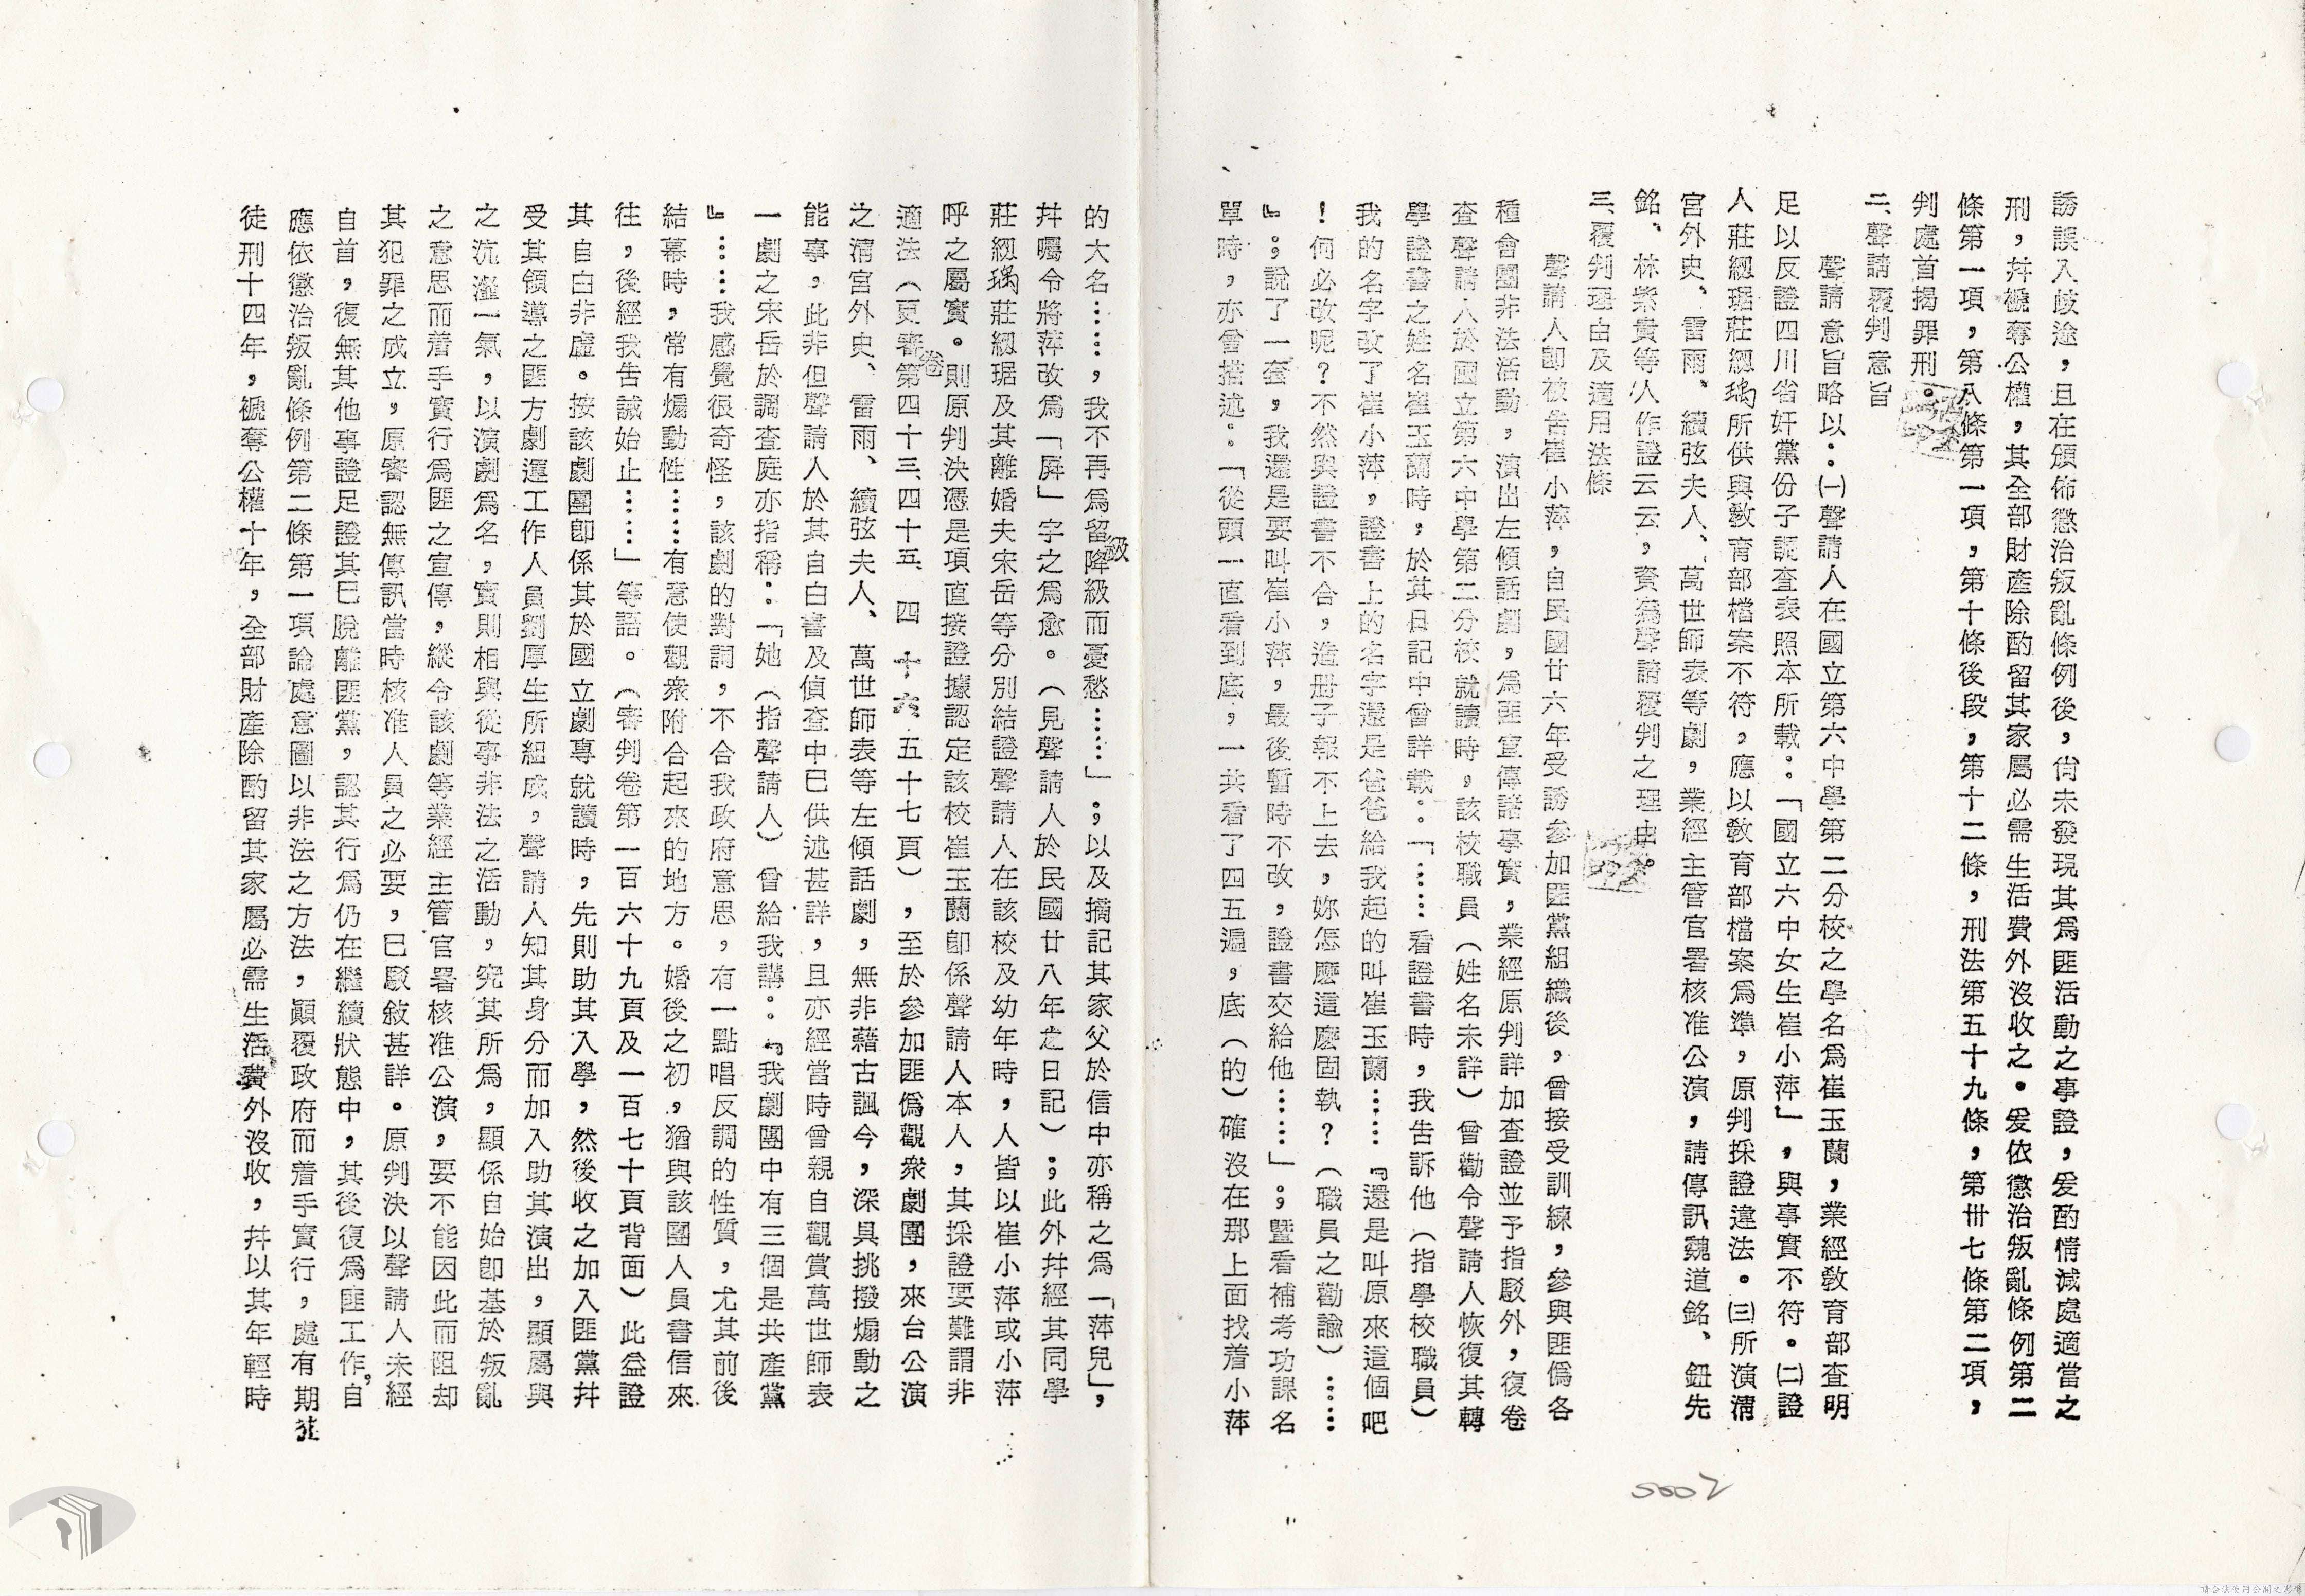 誘誤入歧途，且在頒佈懲治叛亂條例後，尙未發現其爲匪活動之事證，爰酌情減處適當之
刑，幷褫奪公權，其全部財產除酌留其家屬必需生活費外沒收之。爰依懲治叛亂條例第二
條第一項，第八條第一項，第十條後段，第十二條，刑法第五十九條，第卅七條第二項，
判處首揭罪刑。
二、聲請覆判意旨
聲請意旨略以：㈠聲請人在國立第六中學第二分校之學名爲崔玉蘭，業經敎育部查明
足以反證四川省奸黨份子調查表照本所載：「國立六中女生崔小萍」，與事實不符。㈡證
人莊紉琚莊紉瑀所供與敎育部檔案不符，應以敎育部檔案爲準，原判採證違法。㈢所演淸
宮外史、雷雨、續弦夫人、萬世師表等劇，業經主管官署核准公演，請傳訊魏道銘、鈕先
銘、林紫貴等人作證云云，資爲聲請覆判之理由。
三、覆判理由及適用法條
聲請人卽被告崔小萍，自民國廿六年受誘參加匪黨組織後，曾接受訓練，參與匪僞各
種會團非法活動，演出左傾話劇，爲匪宣傳諸事實，業經原判詳加查證並予指駁外，復卷
查聲請人於國立第六中學第二分校就讀時，該校職員（姓名未詳）曾勸令聲請人恢復其轉
學證書之姓名崔玉蘭時，於其日記中曾詳載：「……看證書時，我告訴他（指學校職員）
我的名字改了崔小萍，證書上的名字還是爸爸給我起的叫崔玉蘭……『還是叫原來這個吧
！何必改呢？不然與證書不合，造册子報不上去，妳怎麼這麼固執？（職員之勸諭）……
』；說了一套，我還是要叫崔小萍，最後暫時不改，證書交給他……」；曁看補考功課名
單時，亦曾描述：「從頭一直看到底，一共看了四五遍，底（的）確沒在那上面找着小萍
的大名……，我不再爲留降級而憂愁……」；以及摘記其家父於信中亦稱之爲「萍兒」，
幷囑令將萍改爲「屛」字之爲愈。（見聲請人於民國廿八年之日記）；此外幷經其同學
莊紉瑀莊紉琚及其離婚夫宋岳等分別結證聲請人在該校及幼年時，人皆以崔小萍或小萍
呼之屬實。則原判決憑是項直接證據認定該校崔玉蘭卽係聲請人本人，其採證要難謂非
適法（更審卷第四十三、四十五、四十六、五十七頁），至於參加匪僞觀衆劇團，來台公演
之淸宮外史、雷雨、續弦夫人、萬世師表等左傾話劇，無非藉古諷今，深具挑撥煽動之
能事，此非但聲請人於其自白書及偵查中已供述甚詳，且亦經當時曾親自觀賞萬世師表
一劇之宋岳於調查庭亦指稱：「她（指聲請人）曾給我講：『我劇團中有三個是共產黨
』……我感覺很奇怪，該劇的對詞，不合我政府意思，有一點唱反調的性質，尤其前後
結幕時，常有煽動性……有意使觀衆附合起來的地方。婚後之初，猶與該團人員書信來
往，後經我告誡始止……」等語。（審判卷第一百六十九頁及一百七十頁背面）此益證
其自白非虛。按該劇團卽係其於國立劇專就讀時，先則助其入學，然後收之加入匪黨幷
受其領導之匪方劇運工作人員劉厚生所組成，聲請人知其身分而加入助其演出，顯屬與
之沆瀣一氣，以演劇爲名，實則相與從事非法之活動，究其所爲，顯係自始卽基於叛亂
之意思而着手實行爲匪之宣傳，縱令該劇等業經主管官署核准公演，要不能因此而阻却
其犯罪之成立，原審認無傳訊當時核准人員之必要，已駁敘甚詳。原判決以聲請人未經
自首，復無其他事證足證其已脫離匪黨，認其行爲仍在繼續狀態中，其後復爲匪工作，自
應依懲治叛亂條例第二條第一項論處意圖以非法之方法，顚覆政府而着手實行，處有期
徒刑十四年，褫奪公權十年，全部財產除酌留其家屬必需生活費外沒收，幷以其年輕時
0002
請合法使用公開之影像